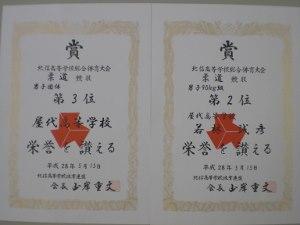 賞
北信高等学校総合体育大会
柔道 競技
男子団体
第3位
屋代高等学校
栄誉を讃える
平成28年5月13日
北信高等学校体育連盟
会長
賞
北信高等学校総合体育大会
柔道 競技
男子90kg級
第2位
屋代高等学校
若林 彦
栄誉を讃える
平成28年5月13日
北信高等学校体育連盟
会長